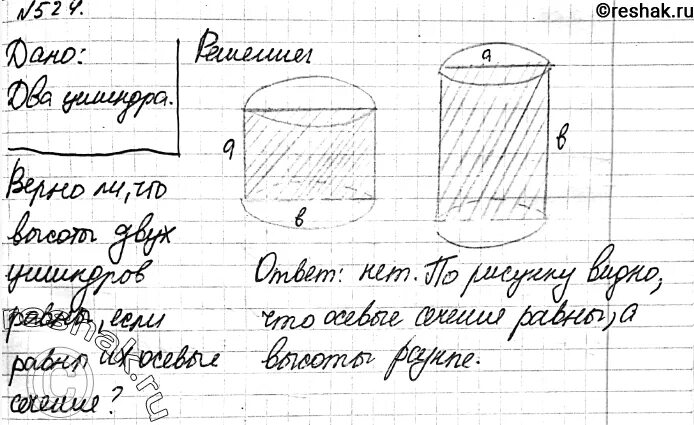 ©reshak.ru
№524.
Дано:
Два цилиндра.
Верно ли, что
высоты двух
цилиндров
равны, если
равны их осевые
сечение?
Решение
a
в
a
в
Ответ: нет. По рисунку видно,
что осевые сечение равны, а
высоты разные.
reshak.ru